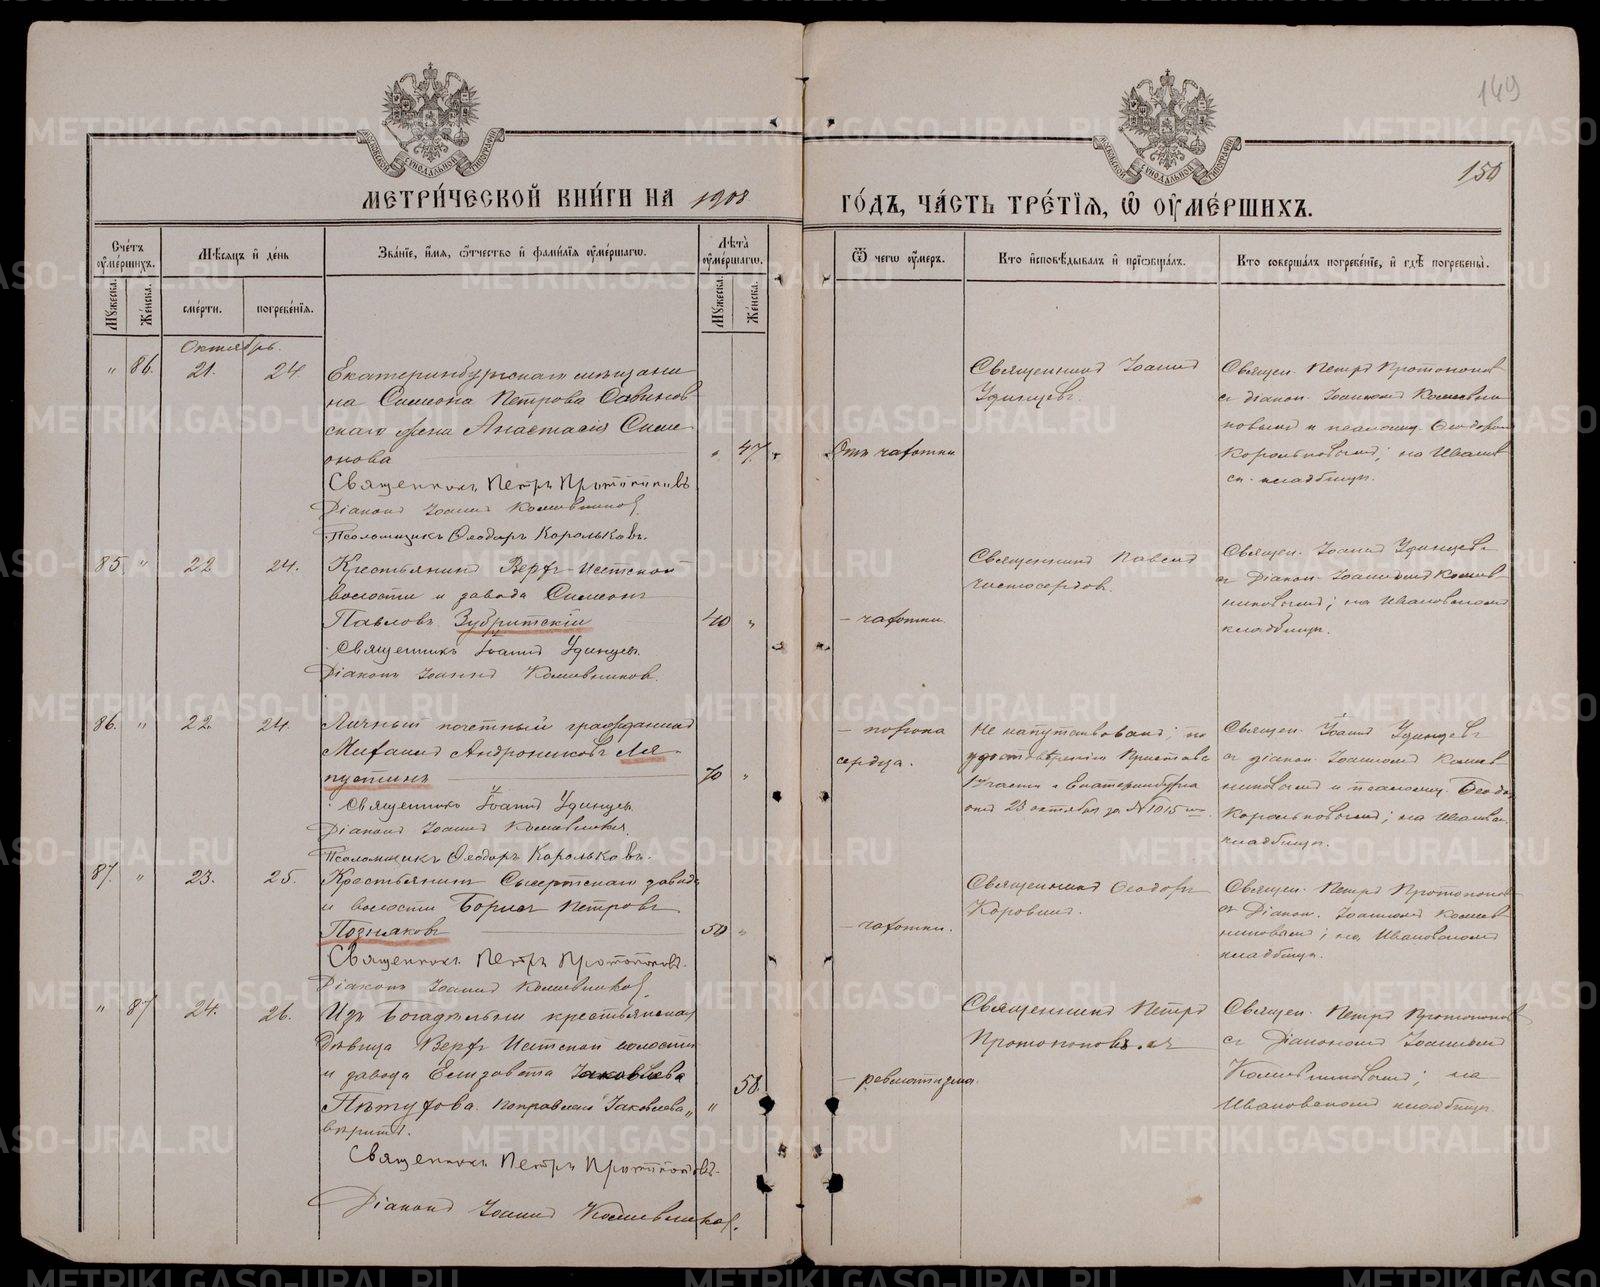 149
150
МЕТРИ́ЧЕСКОЙ КНИ́ГИ НА 1908
ГО́ДЪ, ЧА́СТЬ ТРЕ́ТЇѦ, Ѽ ОУМЕ́РШИХЪ.
Сче́тъ оумершихъ.
Мужеска.
Же́нска.
Мѣсѧцъ и де́нь
сме́рти.
погребе́нїѧ.
Зва́нїе, и́мѧ, ѻтчество и фами́лїѧ оуме́ршагѡ.
Лѣта̀ оуме́ршагѡ.
Мужеска.
Же́нска.
Ѿ чегѡ оу́меръ.
Кто исповѣдывалъ и прїѡбща́лъ.
Кто соверша́лъ погребе́нїе, и гдѣ погребены̀.
Октябрь.
" 86. 21. 24
Екатеринбургскаго мѣщани
на Симеона Петрова Савинов
скаго жена Анастасія Симе
онова " 47.
Священникъ Петръ Протопоповъ
Діаконъ Іоаннъ Кошевниковъ
Псаломщикъ Ѳеодоръ Корольковъ.
Отъ чахотки
Священникъ Іоаннъ
Удинцевъ.
Священ. Петръ Протопопов
съ діакон. Іоанномъ Кошевни
ковымъ и псаломщ. Ѳеодором
Корольковымъ; на Иванов
ск. кладбищѣ.
85 " 22 24.
Крестьянинъ Верхъ-Исетской
волости и завода Симеонъ
Павловъ Зубритскій 40 "
Священникъ Іоаннъ Удинцевъ.
Діаконъ Іоаннъ Кошевниковъ.
— чахотки.
Священникъ Павелъ
Чистосердовъ.
Священ. Іоаннъ Удинцевъ
съ Діакон. Іоанномъ Кошев
никовымъ; на Ивановскомъ
кладбищѣ.
86. " 22. 24.
Личный почетный гражданинъ
Михаилъ Андрониковъ Ля
пустинъ 70 "
Священникъ Іоаннъ Удинцевъ
Діаконъ Іоаннъ Кошевниковъ.
Псаломщикъ Ѳеодоръ Корольковъ.
— порока
сердца.
Не напутствованъ; по
удостовѣренію Пристава
1 части г. Екатеринбурга
отъ 23 октября за № 1015
Священ. Іоаннъ Удинцевъ
съ діакон. Іоанномъ Кошев
никовымъ и псаломщ. Ѳеодо
Корольковымъ; на Иванов.
кладбищѣ.
87. " 23. 25.
Крестьянинъ Сысертскаго завода
и волости Борисъ Петровъ
Поздняковъ 50 "
Священникъ Петръ Протопоповъ.
Діаконъ Іоаннъ Кошевниковъ
— чахотки.
Священникъ Ѳеодоръ
Коровинъ.
Священ. Петръ Протопопов
съ Діакон. Іоанномъ Кошев
никовым; на Ивановскомъ
кладбищѣ.
" 87 24. 26.
Изъ Богадѣльни крестьянская
Дѣвица Верхъ Исетской волости
и завода Елизавета Іаковлева 58.
Пѣтухова. Поправлено „Іаковлева„ "
вѣрить.
Священникъ Петръ Протопоповъ.
Діаконъ Іоаннъ Кошевниковъ.
— ревматизма.
Священникъ Петръ
Протопоповъ.
Священ. Петръ Протопопов
съ Діакономъ Іоанномъ
Кошевниковымъ; на
Ивановскомъ кладбищѣ.
METRIKI.GASO-URAL.RU